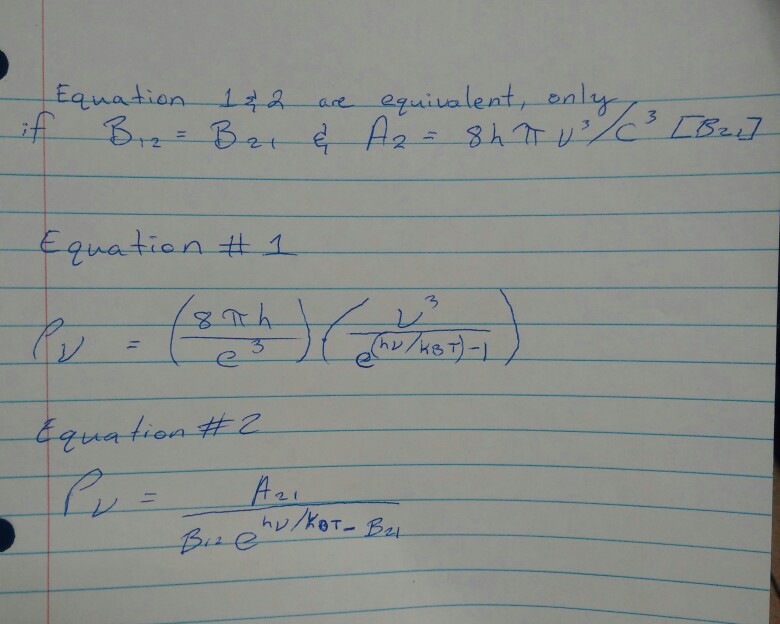 Equation 1 & 2 are equivalent, only
if B₁₂ = B₂₁ & A₂ = 8hπν³/c³ [B₂₁]
Equation # 1
ρν = (8πh / e³) (ν³ / e^(hν/kBT)-1)
Equation # 2
ρν = A₂₁ / B₁₂ e^hν/kBT - B₂₁